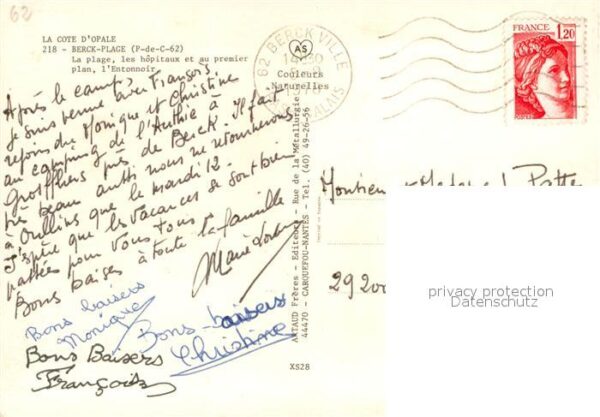 62
LA COTE D'OPALE
218 - BERCK-PLAGE (P-de-C-62)
La plage, les hôpitaux et au premier
plan, l'Entonnoir.
Après le camp, 
je suis venue avec François
rejoindre Monique et Christine
au camping de l'Authie à
Groffliers près de Berck. Il fait
très beau aussi nous ne retournerons
à Oullins que le mardi 12.
J'espère que les vacances se sont bien
passées pour vous tous.
Bons baisers à toute la famille
Bons baisers
Monique
Bons baisers
Christine
Bons Baisers
François
62 BERCK VILLE
PAS DE CALAIS
AS
Couleurs
Naturelles
ARTAUD Frères - Editeurs - Rue de la Métallurgie
44470 - CARQUEFOU-NANTES - Tel. (40) 49-26-56
XS28
FRANCE
1,20
Monsieur et Madame
29200
privacy protection
Datenschutz